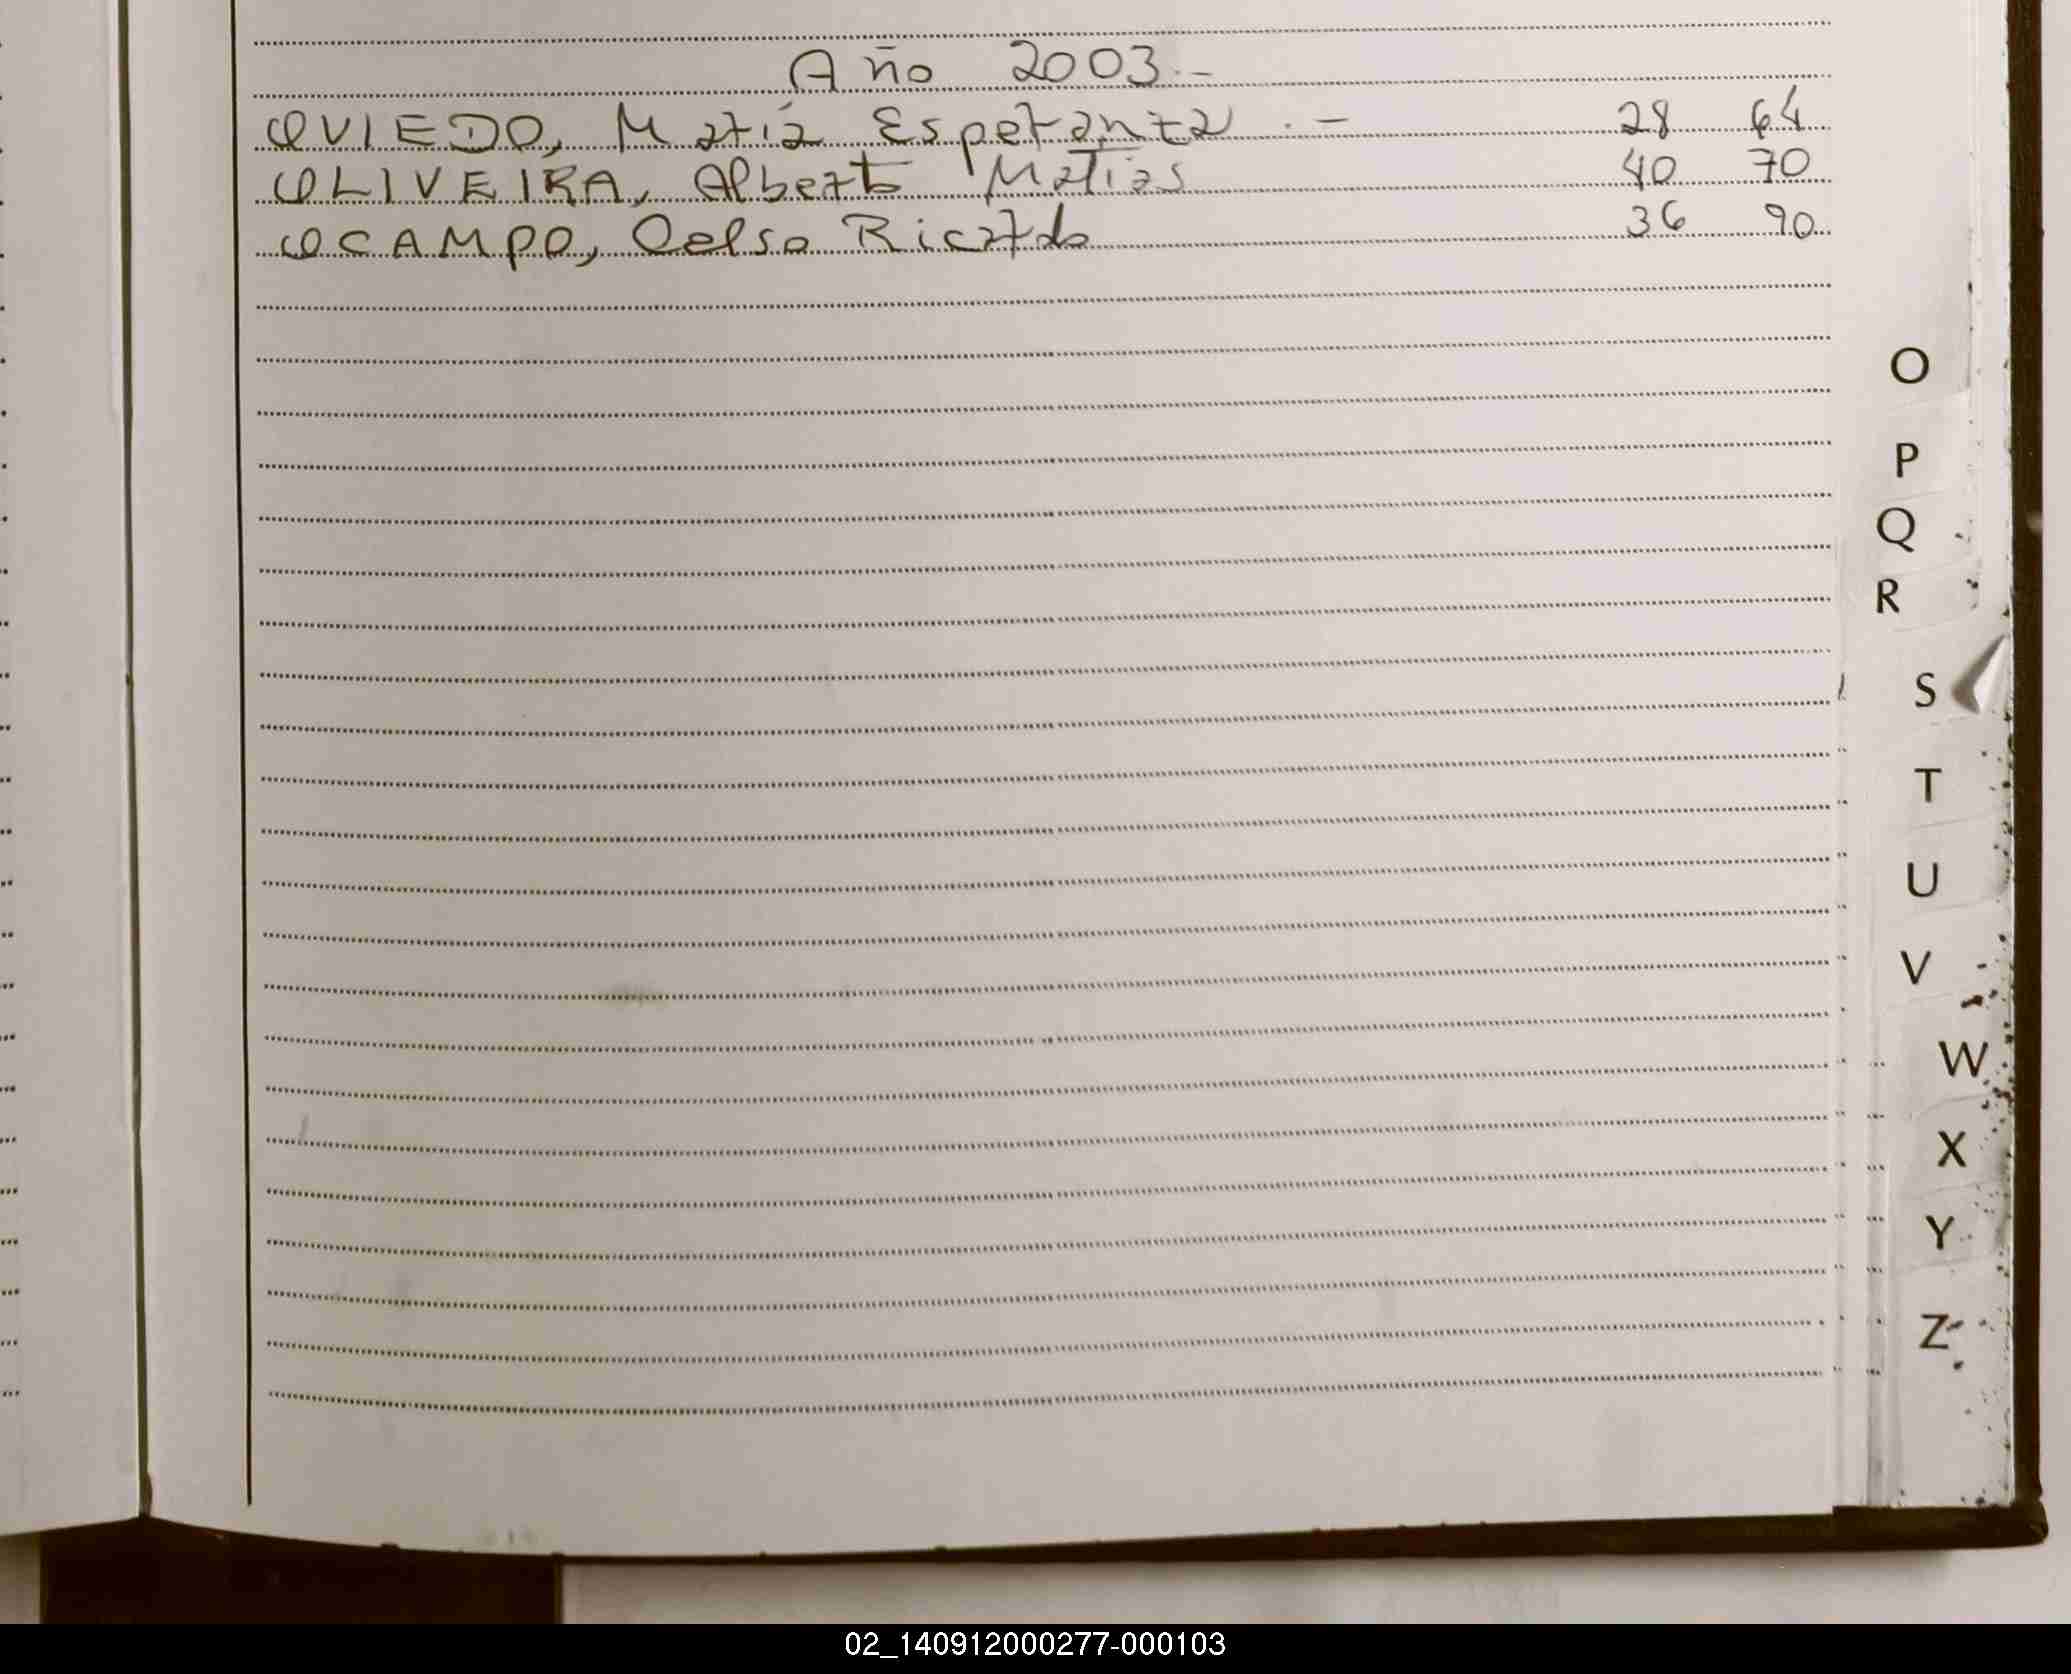 Año 2003.-
OVIEDO, María Esperanza .- 28 64
OLIVEIRA, Alberto Matías 40 70
OCAMPO, Celso Ricardo 36 90
O
P
Q
R
S
T
U
V
W
X
Y
Z
02_140912000277-000103